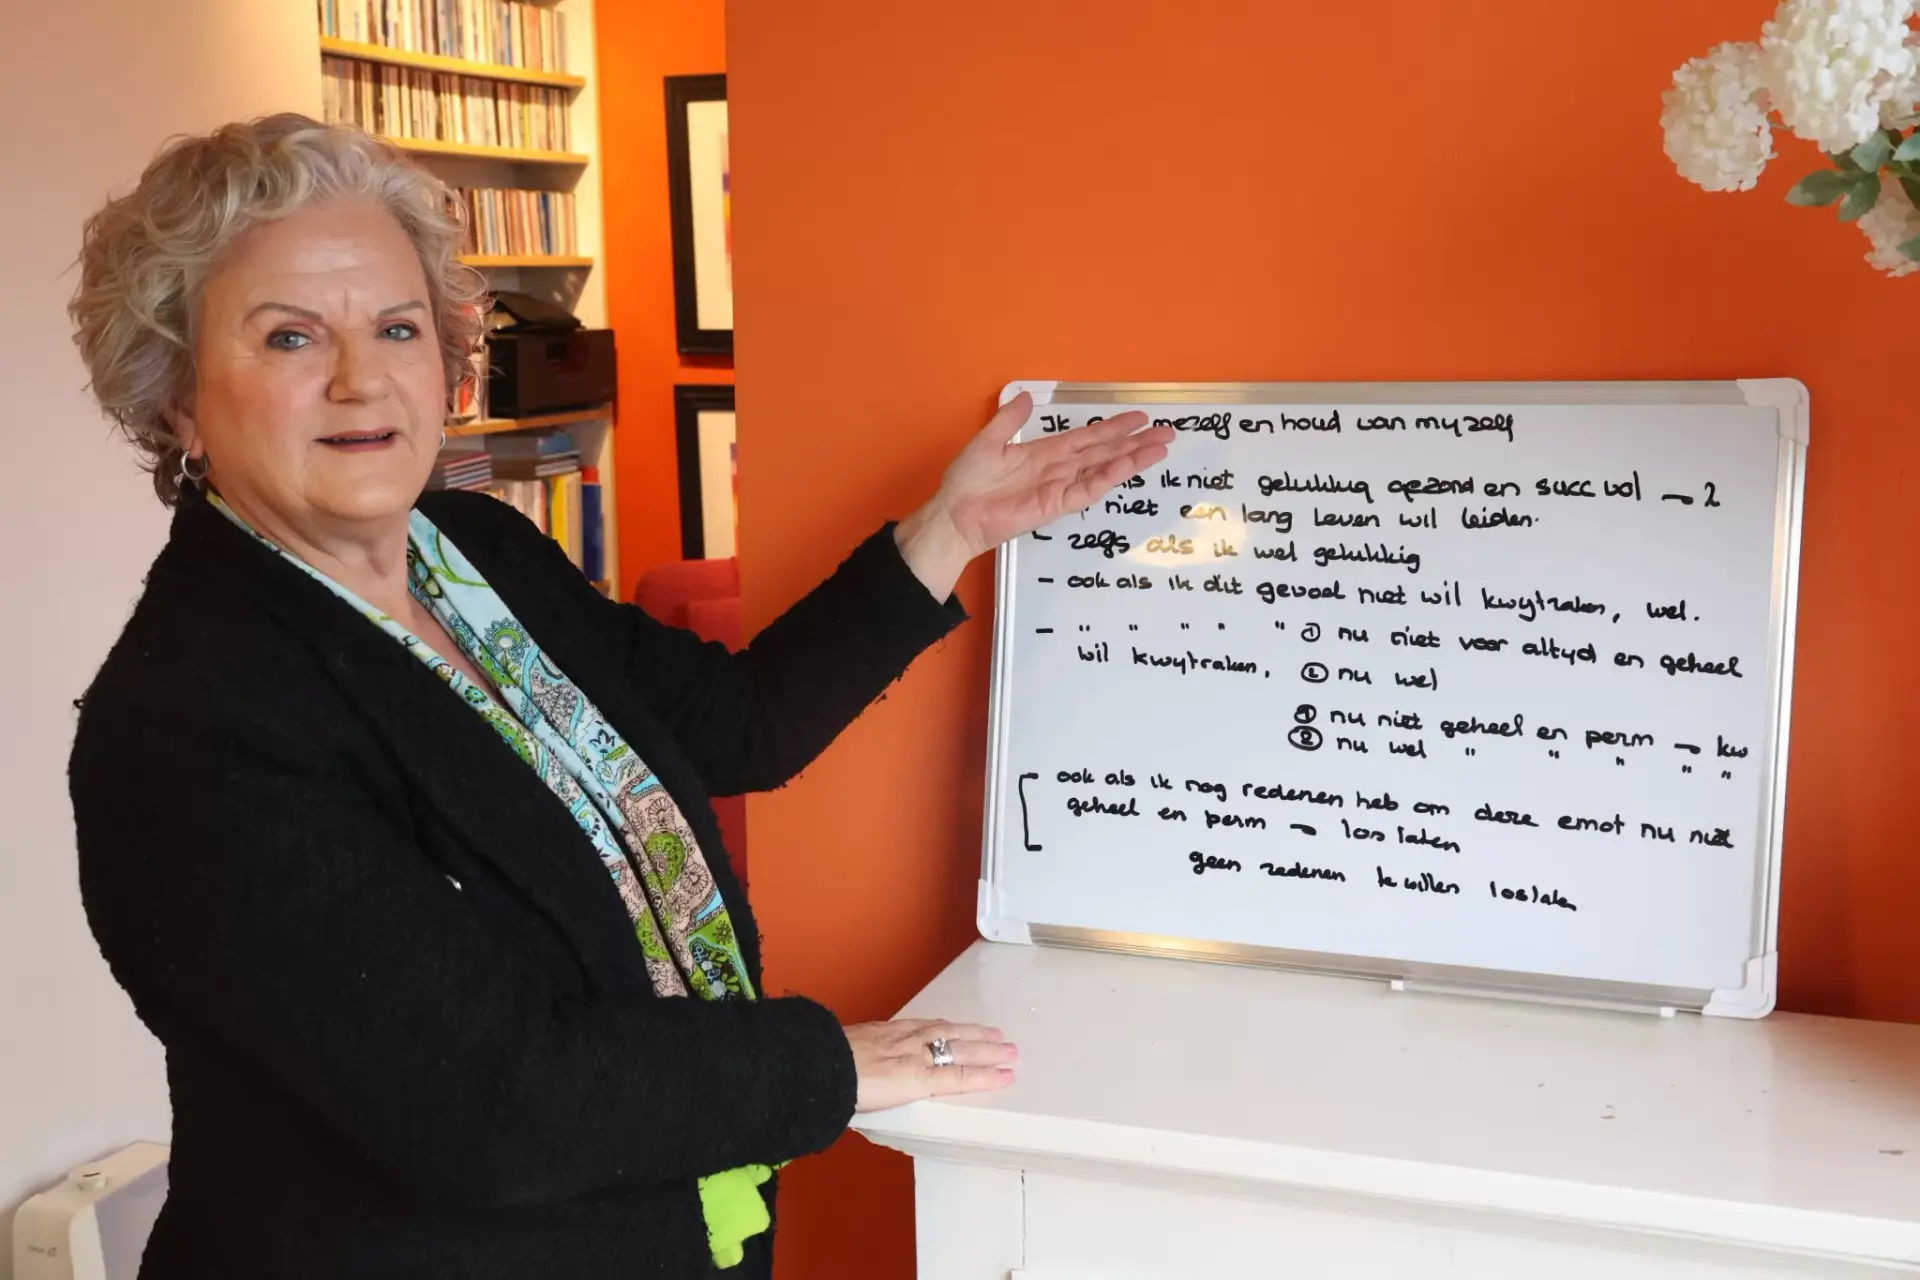 Ik mezelf en houd van myzelf
als ik niet gelukkig gezond en succ vol → 2
niet een lang leven wil leiden.
- zelfs als ik wel gelukkig
- ook als ik dit gevoel niet wil kwytraken, wel.
- " " " " " ① nu niet voor altyd en geheel
wil kwytraken. ② nu wel
① nu niet geheel en perm → kw
② nu wel " " " " "
ook als ik nog redenen heb om deze emot nu niet
geheel en perm → los laten
geen redenen te willen loslaten